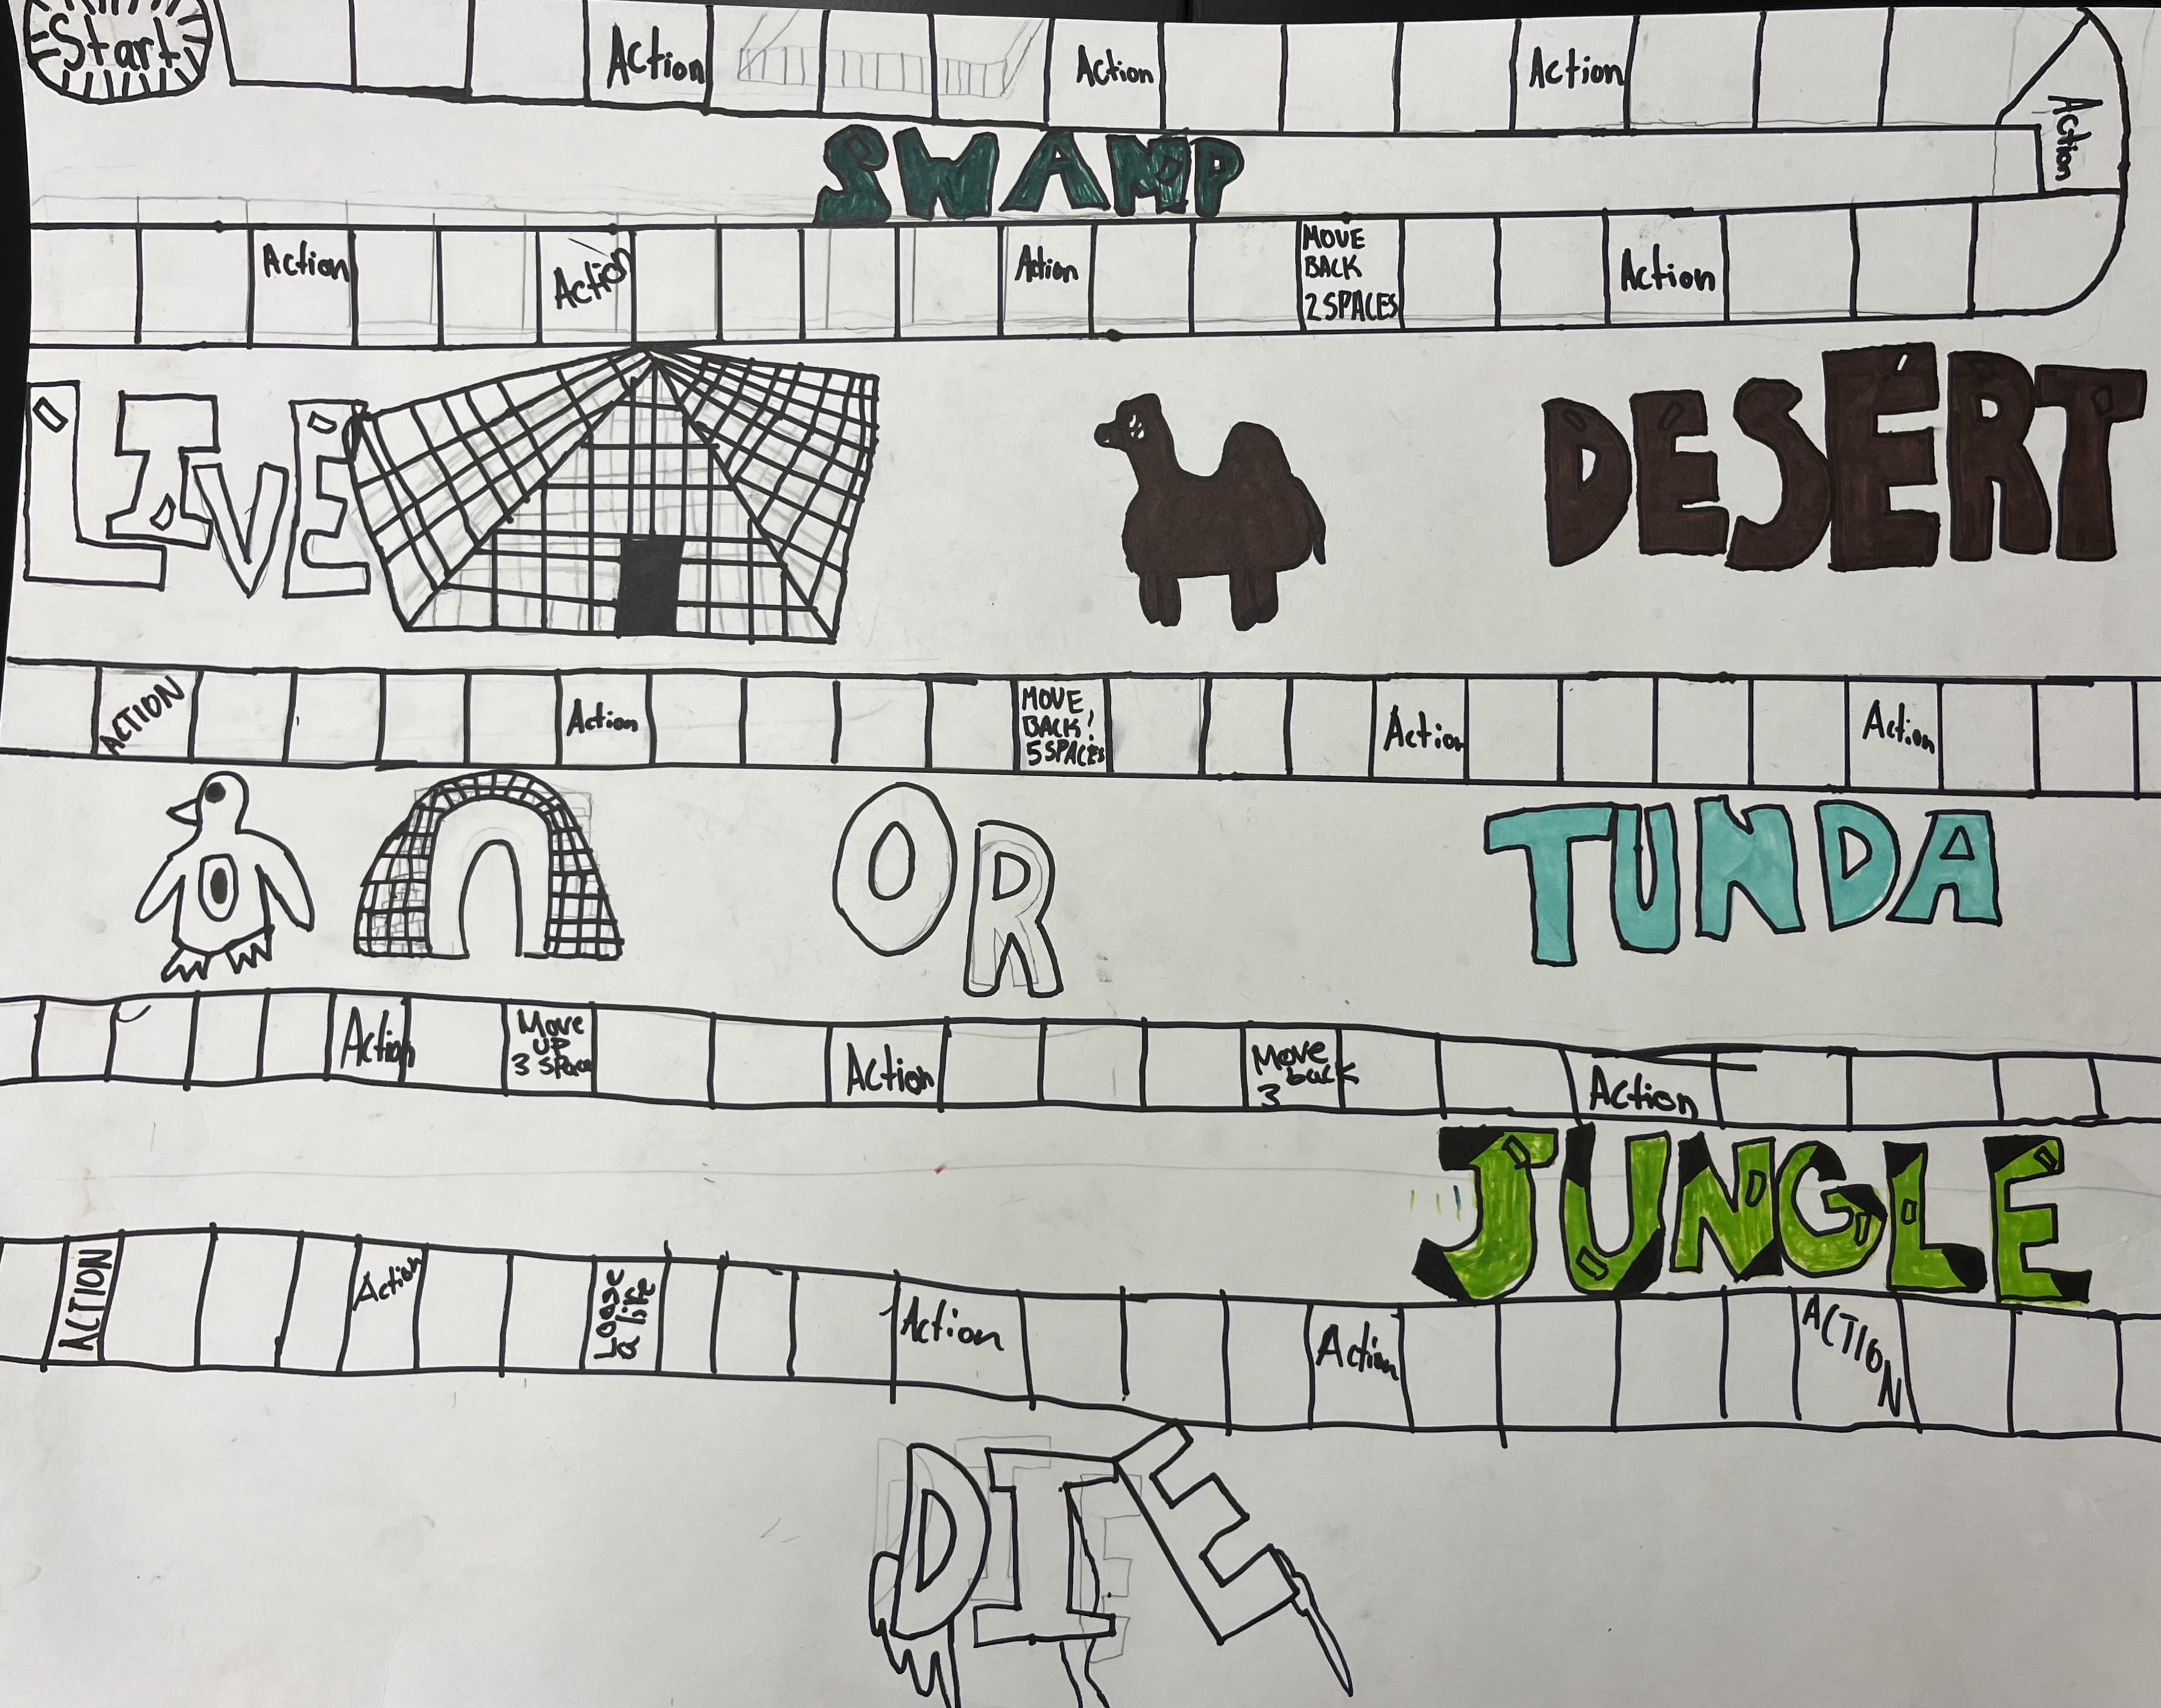 Start
Action
Action
Action
Action
SWAMP
Action
Action
Action
MOVE
BACK
2 SPACES
Action
LIVE
DESERT
ACTION
Action
MOVE
BACK!
5 SPACES
Action
Action
OR
TUNDA
Action
Move
UP
3 Space
Action
Move
back
3
Action
JUNGLE
ACTION
Action
Loose
a life
Action
Action
ACTION
DIE